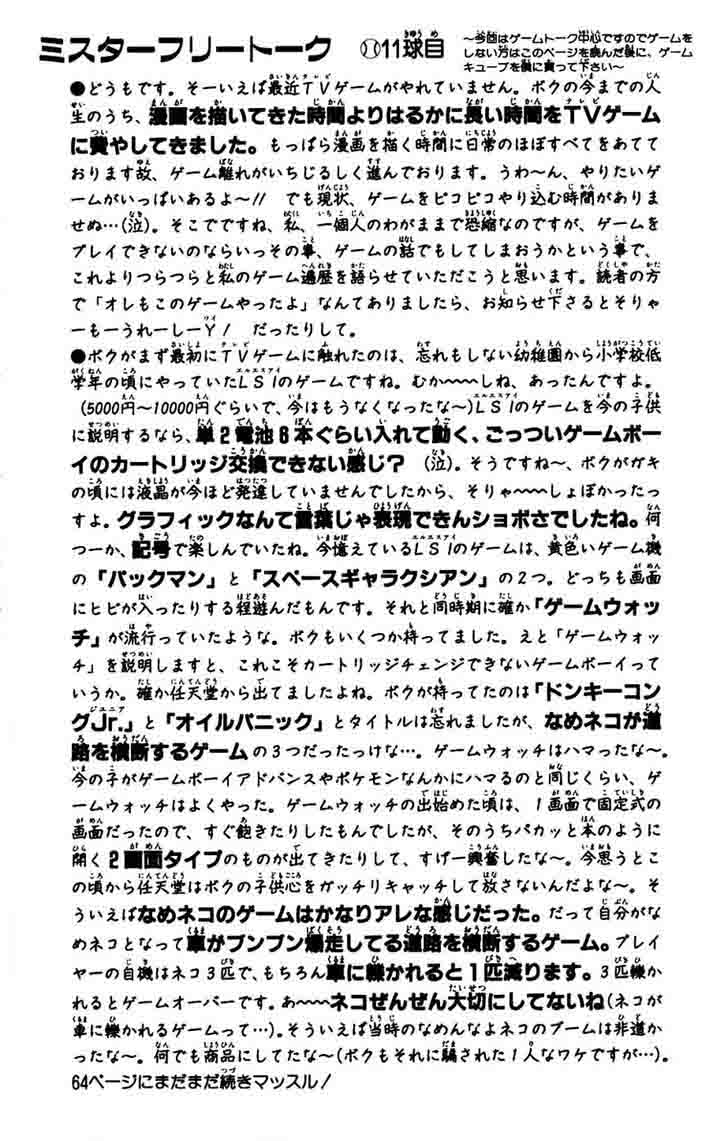 ミスターフリートーク ⚾11球目
〜今回はゲームトーク中心ですのでゲームを
しない方はこのページを読んだ後に、ゲーム
キューブを僕に買って下さい〜
●どうもです。そーいえば最近TVゲームがやれていません。ボクの今までの人
生のうち、漫画を描いてきた時間よりはるかに長い時間をTVゲーム
に費やしてきました。もっぱら漫画を描く時間に日常のほぼすべてをあてて
おります故、ゲーム離れがいちじるしく進んでおります。うわ〜ん、やりたいゲ
ームがいっぱいあるよ〜!! でも現状、ゲームをピコピコやり込む時間がありま
せぬ…(泣)。そこでですね、私、一個人のわがままで恐縮なのですが、ゲームを
プレイできないのならいっその事、ゲームの話でもしてしまおうかという事で、
これよりつらつらと私のゲーム遍歴を語らせていただこうと思います。読者の方
で「オレもこのゲームやったよ」なんてありましたら、お知らせ下さるとそりゃ
ーもーうれーしーY! だったりして。
●ボクがまず最初にTVゲームに触れたのは、忘れもしない幼稚園から小学校低
学年の頃にやっていたLSIのゲームですね。むか〜〜〜しね、あったんですよ。
(5000円〜10000円ぐらいで、今はもうなくなったな〜)LSIのゲームを今の子供
に説明するなら、単2電池6本ぐらい入れて動く、ごっついゲームボー
イのカートリッジ交換できない感じ?(泣)。そうですね〜、ボクがガキ
の頃には液晶が今ほど発達していませんでしたから、そりゃ〜〜〜しょぼかったっ
すよ。グラフィックなんて言葉じゃ表現できんショボさでしたね。何
つーか、記号で楽しんでいたね。今憶えているLSIのゲームは、黄色いゲーム機
の「パックマン」と「スペースギャラクシアン」の2つ。どっちも画面
にヒビが入ったりする程遊んだもんです。それと同時期に確か「ゲームウォッ
チ」が流行っていたような。ボクもいくつか持ってました。えと「ゲームウォッ
チ」を説明しますと、これこそカートリッジチェンジできないゲームボーイって
いうか。確か任天堂から出てましたよね。ボクが持ってたのは「ドンキーコン
グJr.」と「オイルパニック」とタイトルは忘れましたが、なめネコが道
路を横断するゲームの3つだったっけな…。ゲームウォッチはハマったな〜。
今の子がゲームボーイアドバンスやポケモンなんかにハマるのと同じくらい、ゲ
ームウォッチはよくやった。ゲームウォッチの出始めた頃は、1画面で固定式の
画面だったので、すぐ飽きたりしたもんでしたが、そのうちパカッと本のように
開く2画面タイプのものが出てきたりして、すげー興奮したな〜。今思うとこ
の頃から任天堂はボクの子供心をガッチリキャッチして放さないんだよな〜。そ
ういえばなめネコのゲームはかなりアレな感じだった。だって自分がな
めネコとなって車がブンブン爆走してる道路を横断するゲーム。プレイ
ヤーの自機はネコ3匹で、もちろん車に轢かれると1匹減ります。3匹轢か
れるとゲームオーバーです。あ〜〜〜ネコぜんぜん大切にしてないね(ネコが
車に轢かれるゲームって…)。そういえば当時のなめんなよネコのブームは非道か
ったな〜。何でも商品にしてたな〜(ボクもそれに騙された1人なワケですが…)。
64ページにまだまだ続きマッスル!